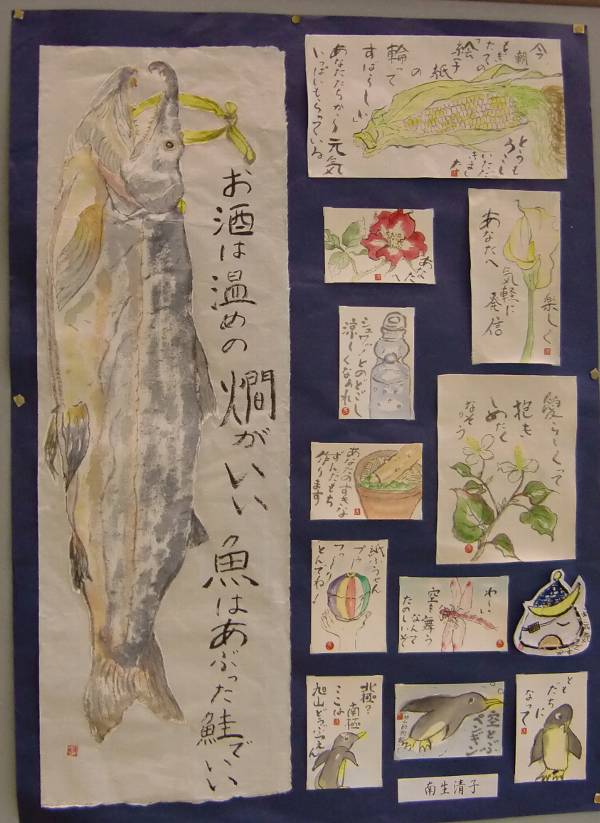 お酒は温めの燗がいい
魚はあぶった鮭でいい
今朝
ときたての
「絵手紙」の
輪って
すばらしい
あなたたちから元気
いっぱいもらっている
とうも
ろこし
いただ
きまし
た
あな
たへ
楽しく
気軽に
発信
あなたへ
シュワッとのどごし
涼しくなあれ
愛らしくって
抱き
しめたく
なっちゃう
あなたのすきな
ずんだもち
作ります
紙ふうせん
フワーリ
とんでね!
わーい
空を舞う
なんて
たのしいぞ
北極?
南極
ここは
旭山どうぶつえん
空とぶ
ペンギン
ともだちに
なって
南生清子